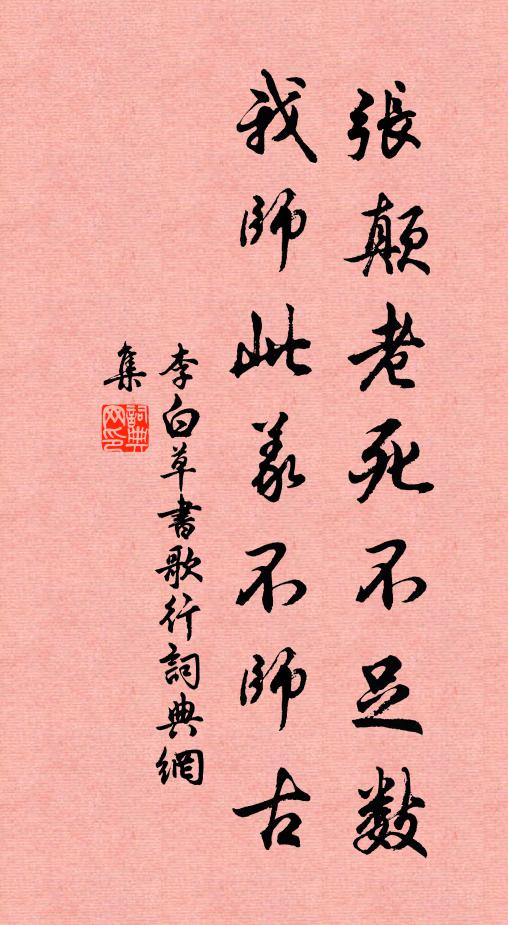 張顛老死不足數
我師此義不師古
李白草書歌行詞典網
集
詞典
网印